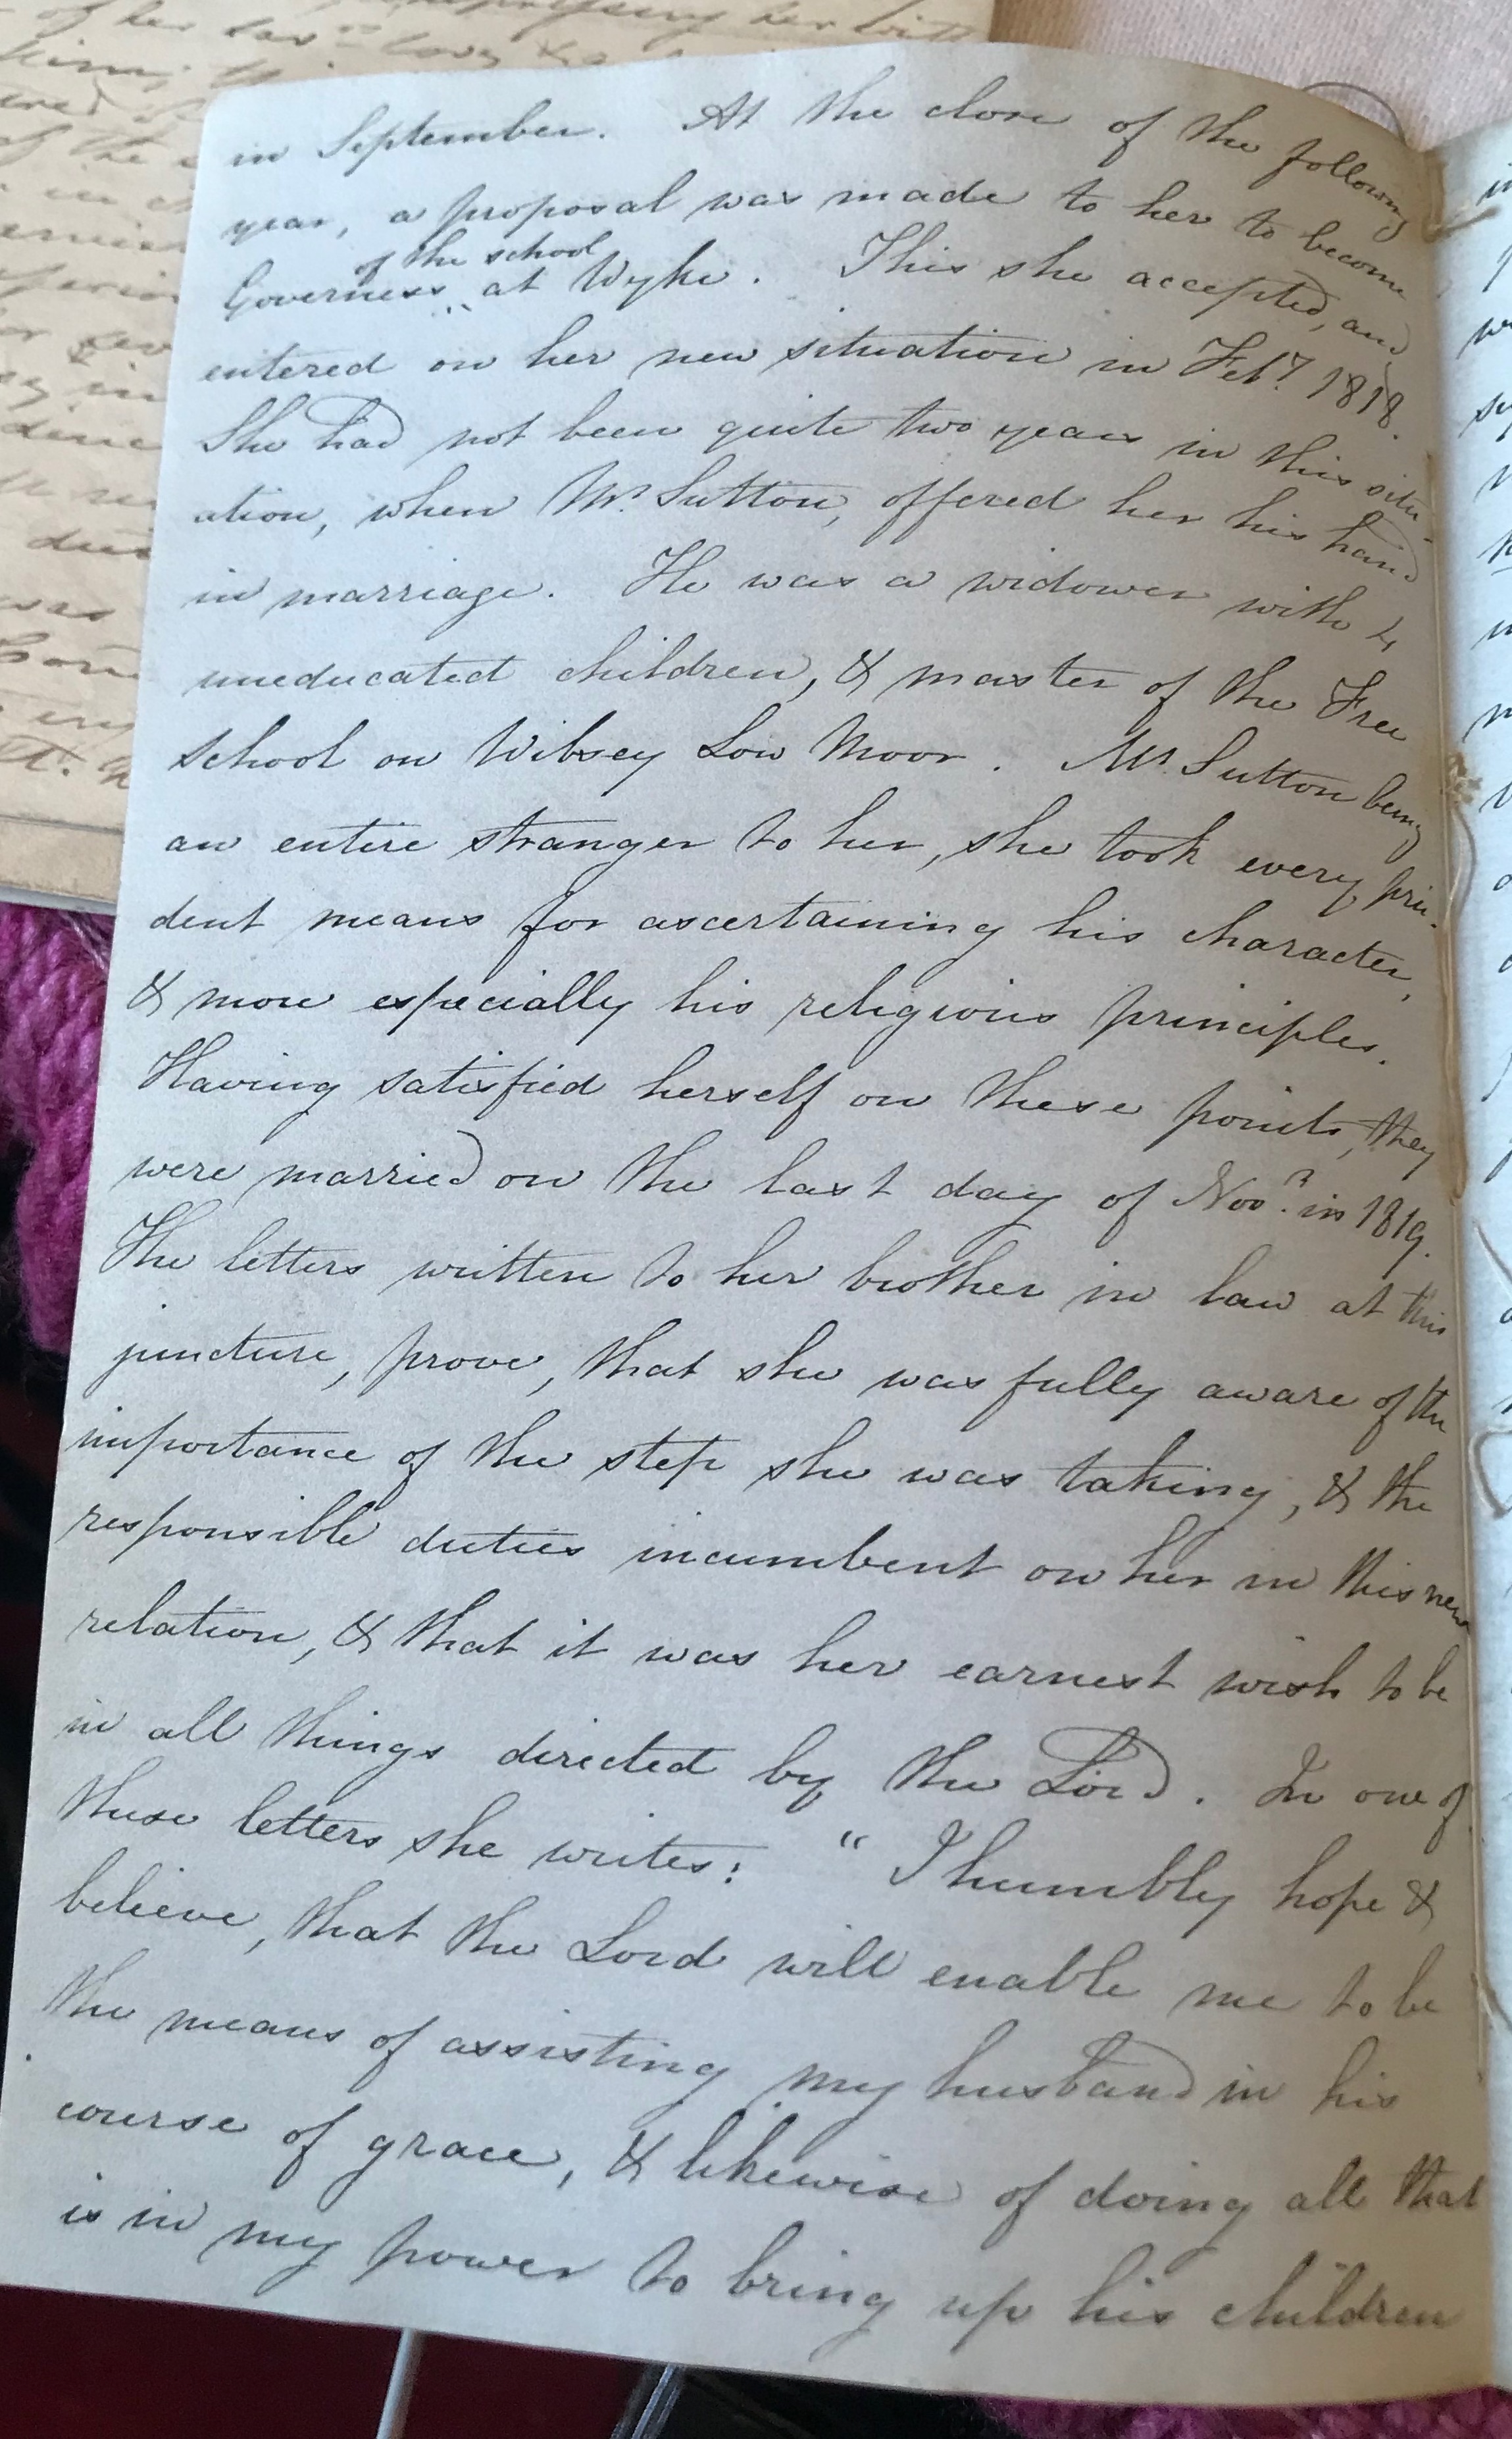 in September. At the close of the following
year, a proposal was made to her to become
of the school
Governess at Wyke. This she accepted, and
entered on her new situation in Feby. 1818.
She had not been quite two years in this situ-
ation, when Mr. Sutton, offered her his hand
in marriage. He was a widower with 4
uneducated children, & master of the Free
school on Wibsey Low Moor. Mr. Sutton being
an entire stranger to her, she took every pru-
dent means for ascertaining his character,
& more especially his religious principles.
Having satisfied herself on these points, they
were married on the last day of Novr. in 1819.
The letters written to her brother in law at this
juncture, prove, that she was fully aware of the
importance of the step she was taking, & the
responsible duties incumbent on her in this new
relation, & that it was her earnest wish to be
in all things directed by the Lord. In one of
these letters she writes: "I humbly hope &
believe, that the Lord will enable me to be
the means of assisting my husband in his
course of grace, & likewise of doing all that
is in my power to bring up his children